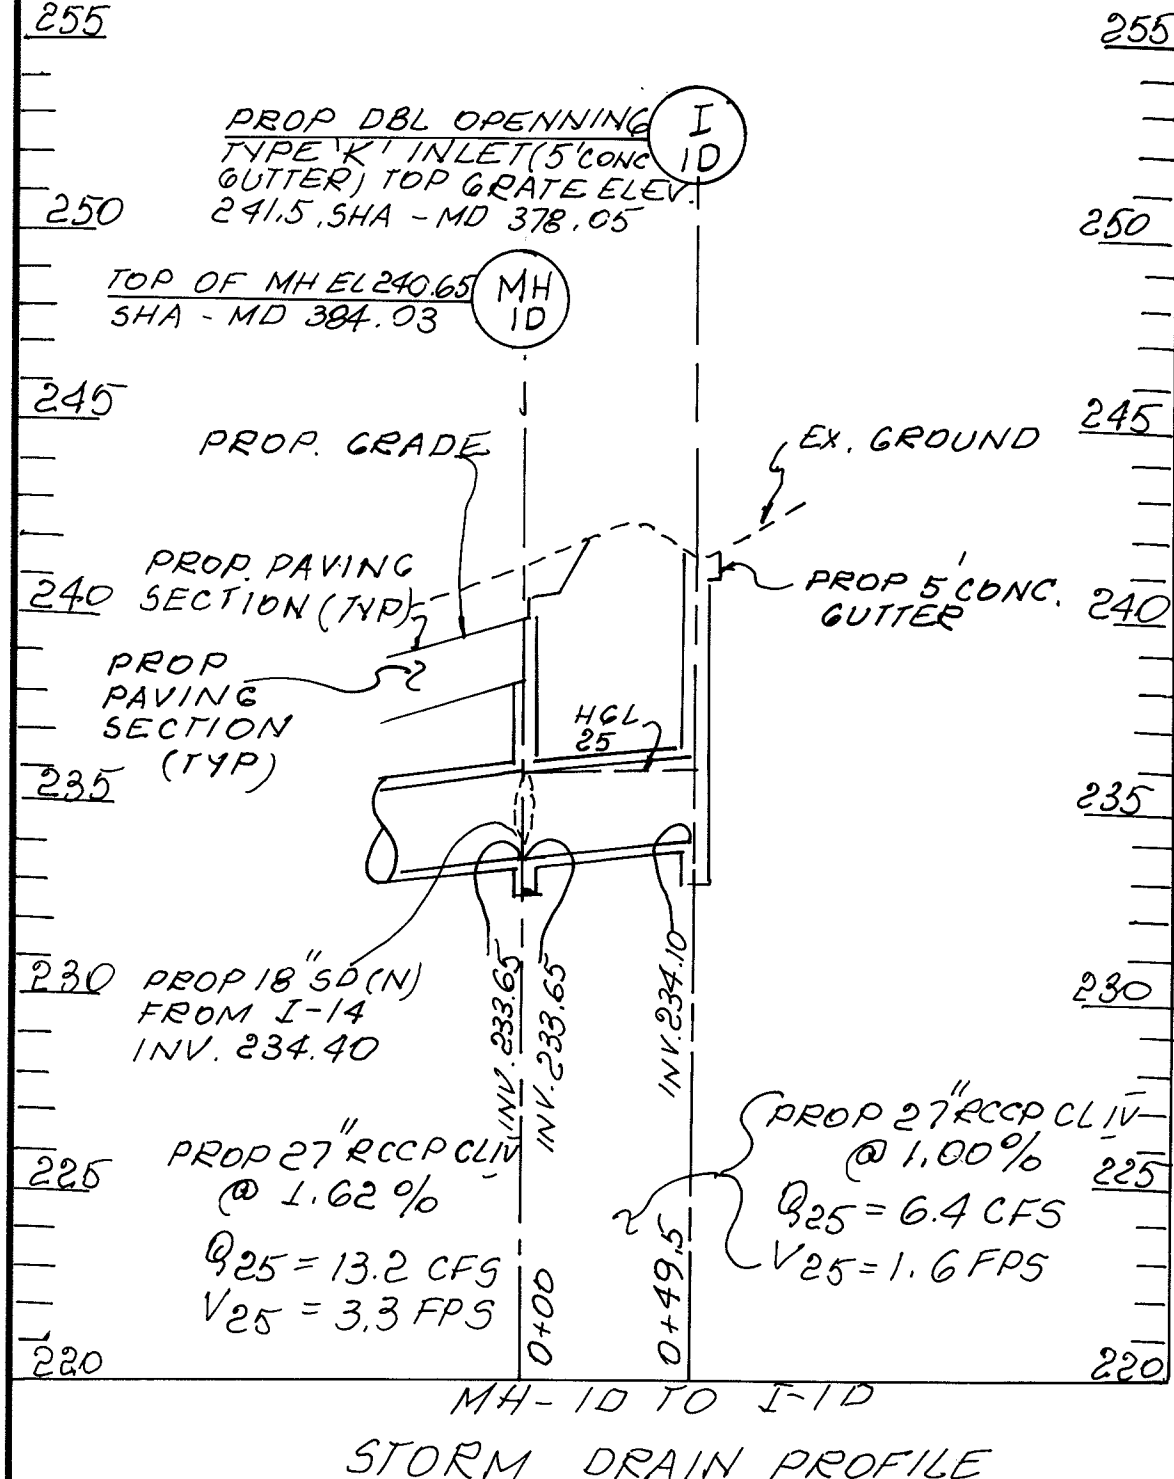 255
255
PROP DBL OPENNING
TYPE 'K' INLET (5' CONC
GUTTER) TOP GRATE ELEV.
241.5, SHA - MD 378.05
I
1D
250
250
TOP OF MH EL 240.65
SHA - MD 384.03
MH
1D
245
245
PROP. GRADE
EX. GROUND
PROP. PAVING
SECTION (TYP)
240
240
PROP 5' CONC.
GUTTER
PROP
PAVING
SECTION
(TYP)
HGL
25
235
235
230
230
PROP 18" SD (N)
FROM I-14
INV. 234.40
INV. 233.65
INV. 233.65
INV. 234.10
PROP 27" RCCP CL IV
@ 1.62 %
Q25 = 13.2 CFS
V25 = 3.3 FPS
PROP 27" RCCP CL IV
@ 1.00 %
Q25 = 6.4 CFS
V25 = 1.6 FPS
225
225
0+00
0+49.5
220
220
MH-1D TO I-1D
STORM DRAIN PROFILE